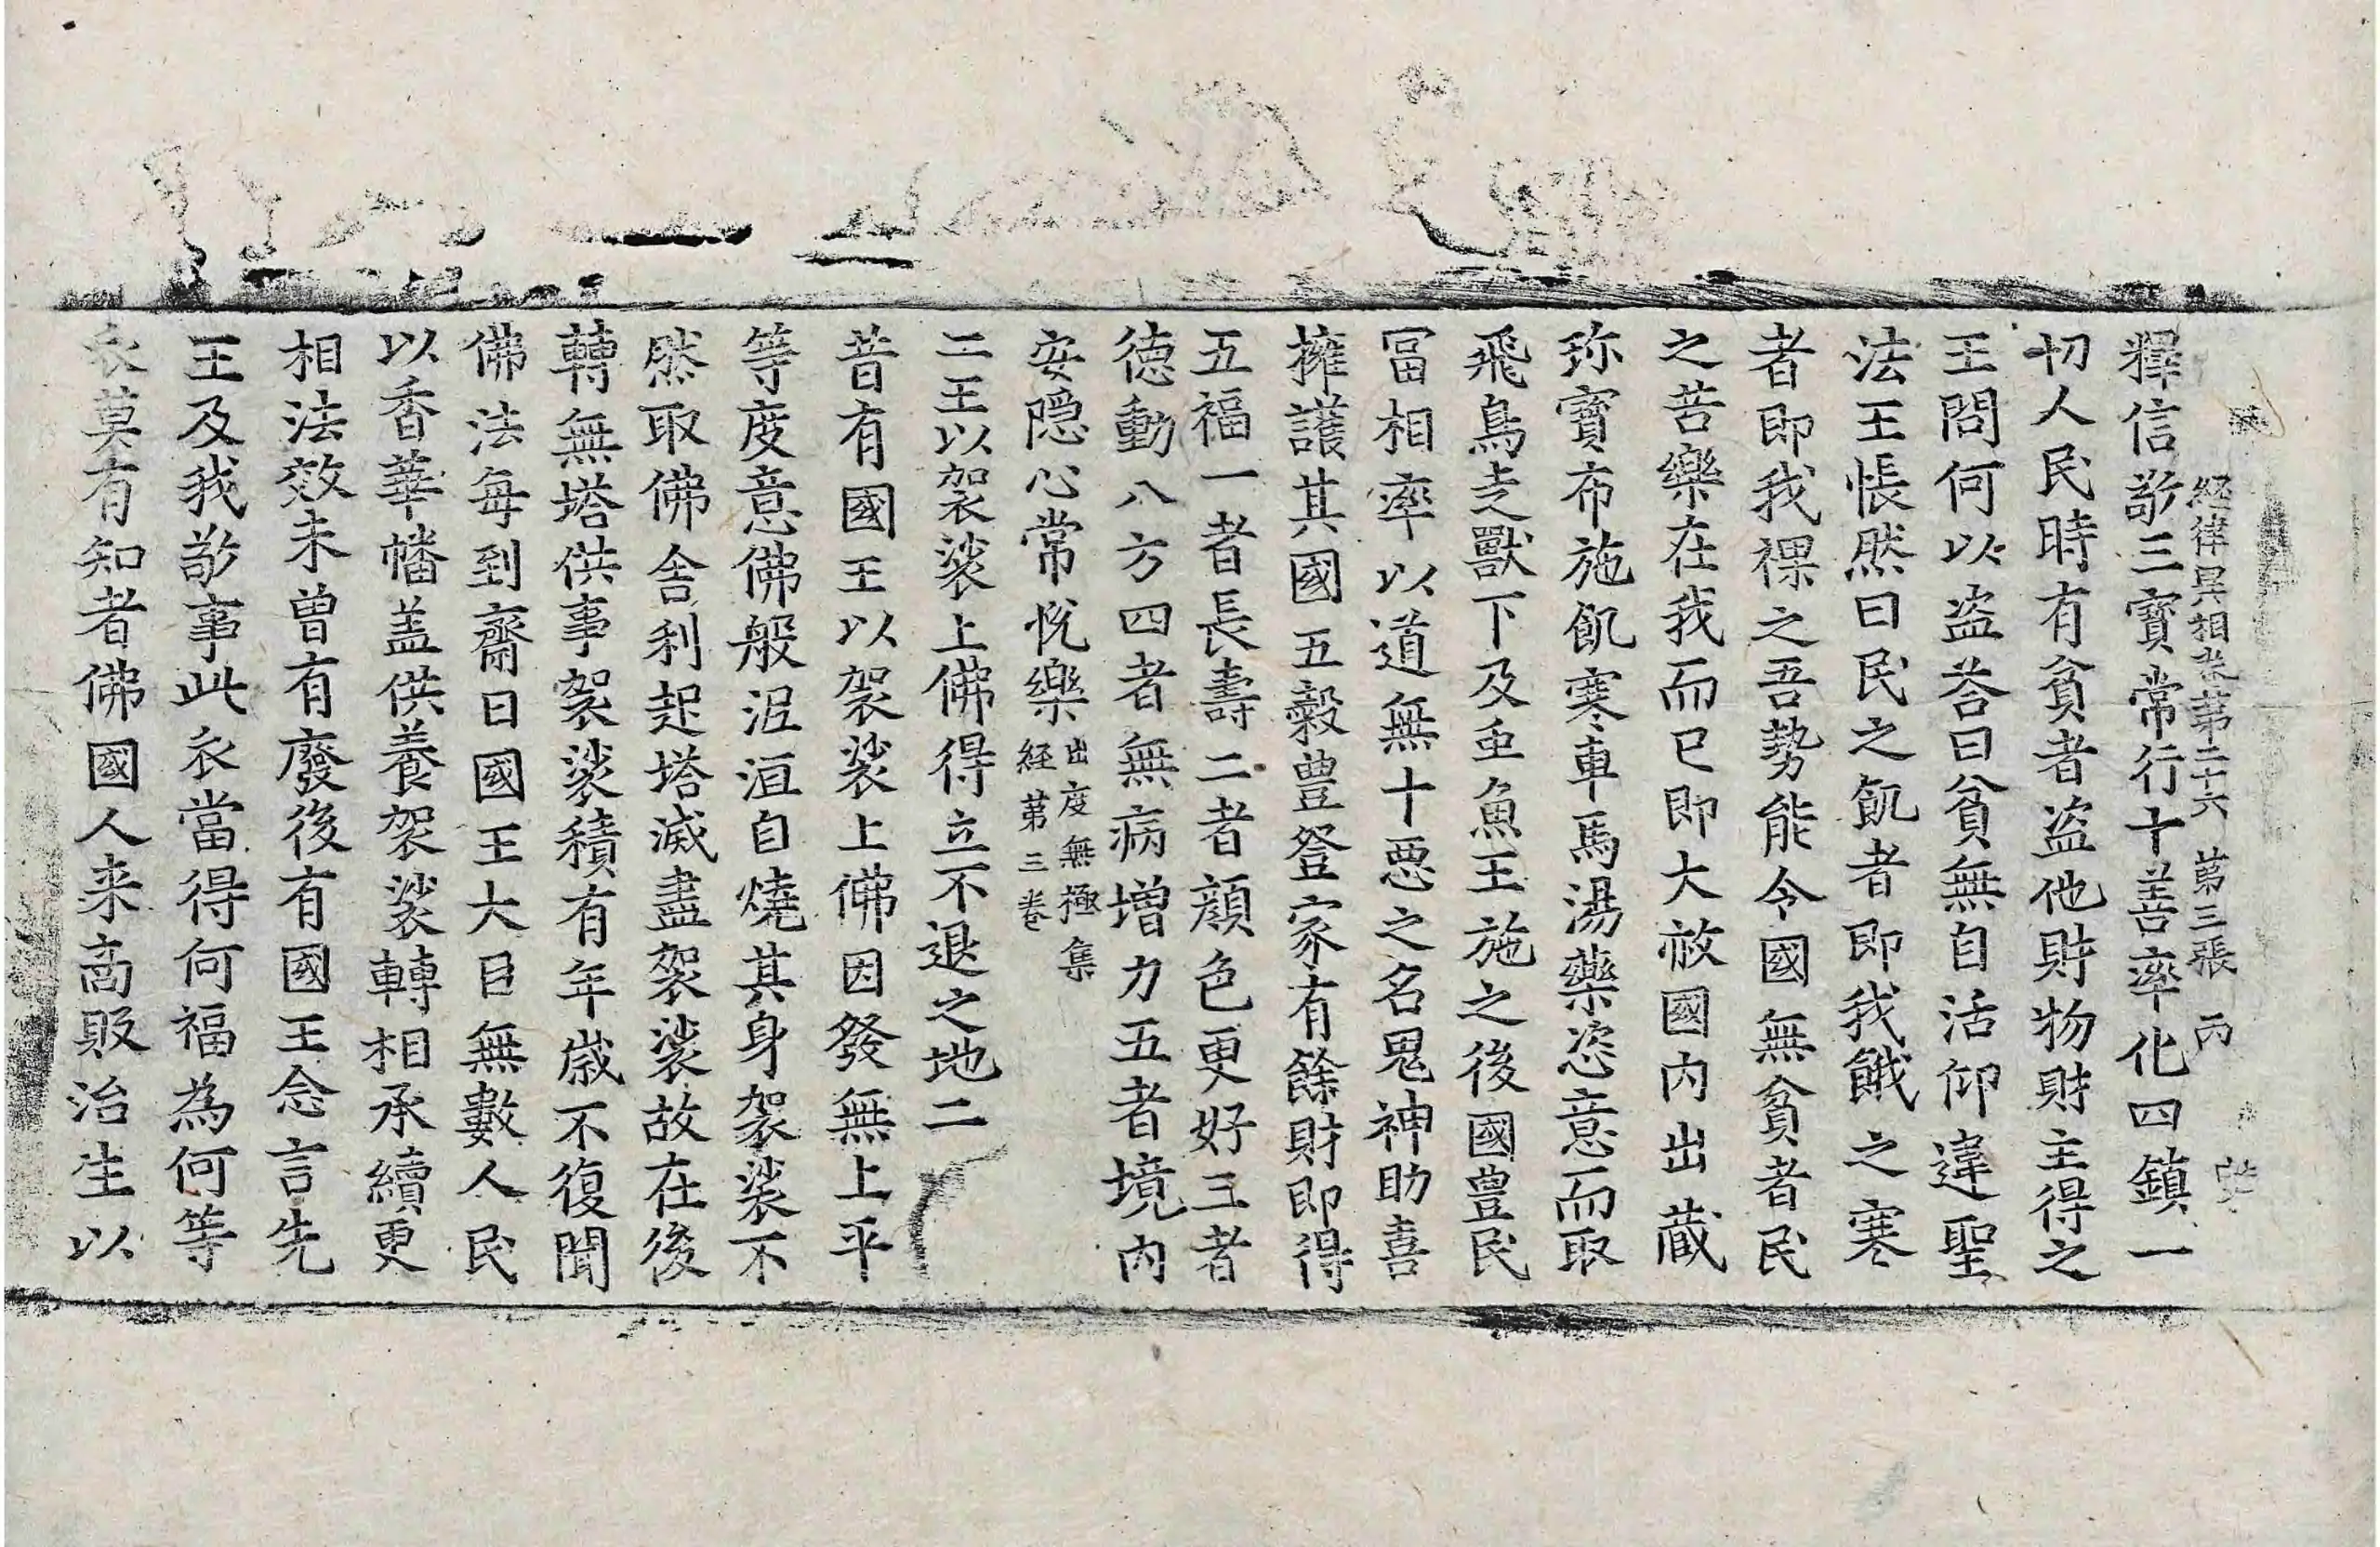 経律異相卷第二十六 第三張 丙
釋信敬三寶常行十善率化四鎮一
切人民時有貧者盜他財物財主得之
王問何以盜荅曰貧無自活仰違聖
法王悵然曰民之飢者即我餓之寒
者即我裸之吾勢能令國無貧者民
之苦樂在我而已即大赦國内出蔵
珎寳布施飢寒車馬湯藥恣意而取
飛鳥走獸下及虫魚王施之後國豊民
冨相率以道無十惡之名鬼神助喜
擁護其國五穀豊登家有餘財即得
五福一者長壽二者顔色更好三者
德動八方四者無病增力五者境内
安隠心常悅樂出度無極集
経第三卷
二王以袈裟上佛得立不退之地二
昔有國王以袈裟上佛因發無上平
等度意佛般泥洹自燒其身袈裟不
然取佛舎利起塔滅盡袈裟故在後
轉無塔供事袈裟積有年歲不復聞
佛法每到齋日國王大臣無數人民
以香華幡盖供養袈裟轉相承續更
相法效未曽有廢後有國王念言先
王及我敬事此衣當得何福為何等
衣莫有知者佛國人来商販治生以